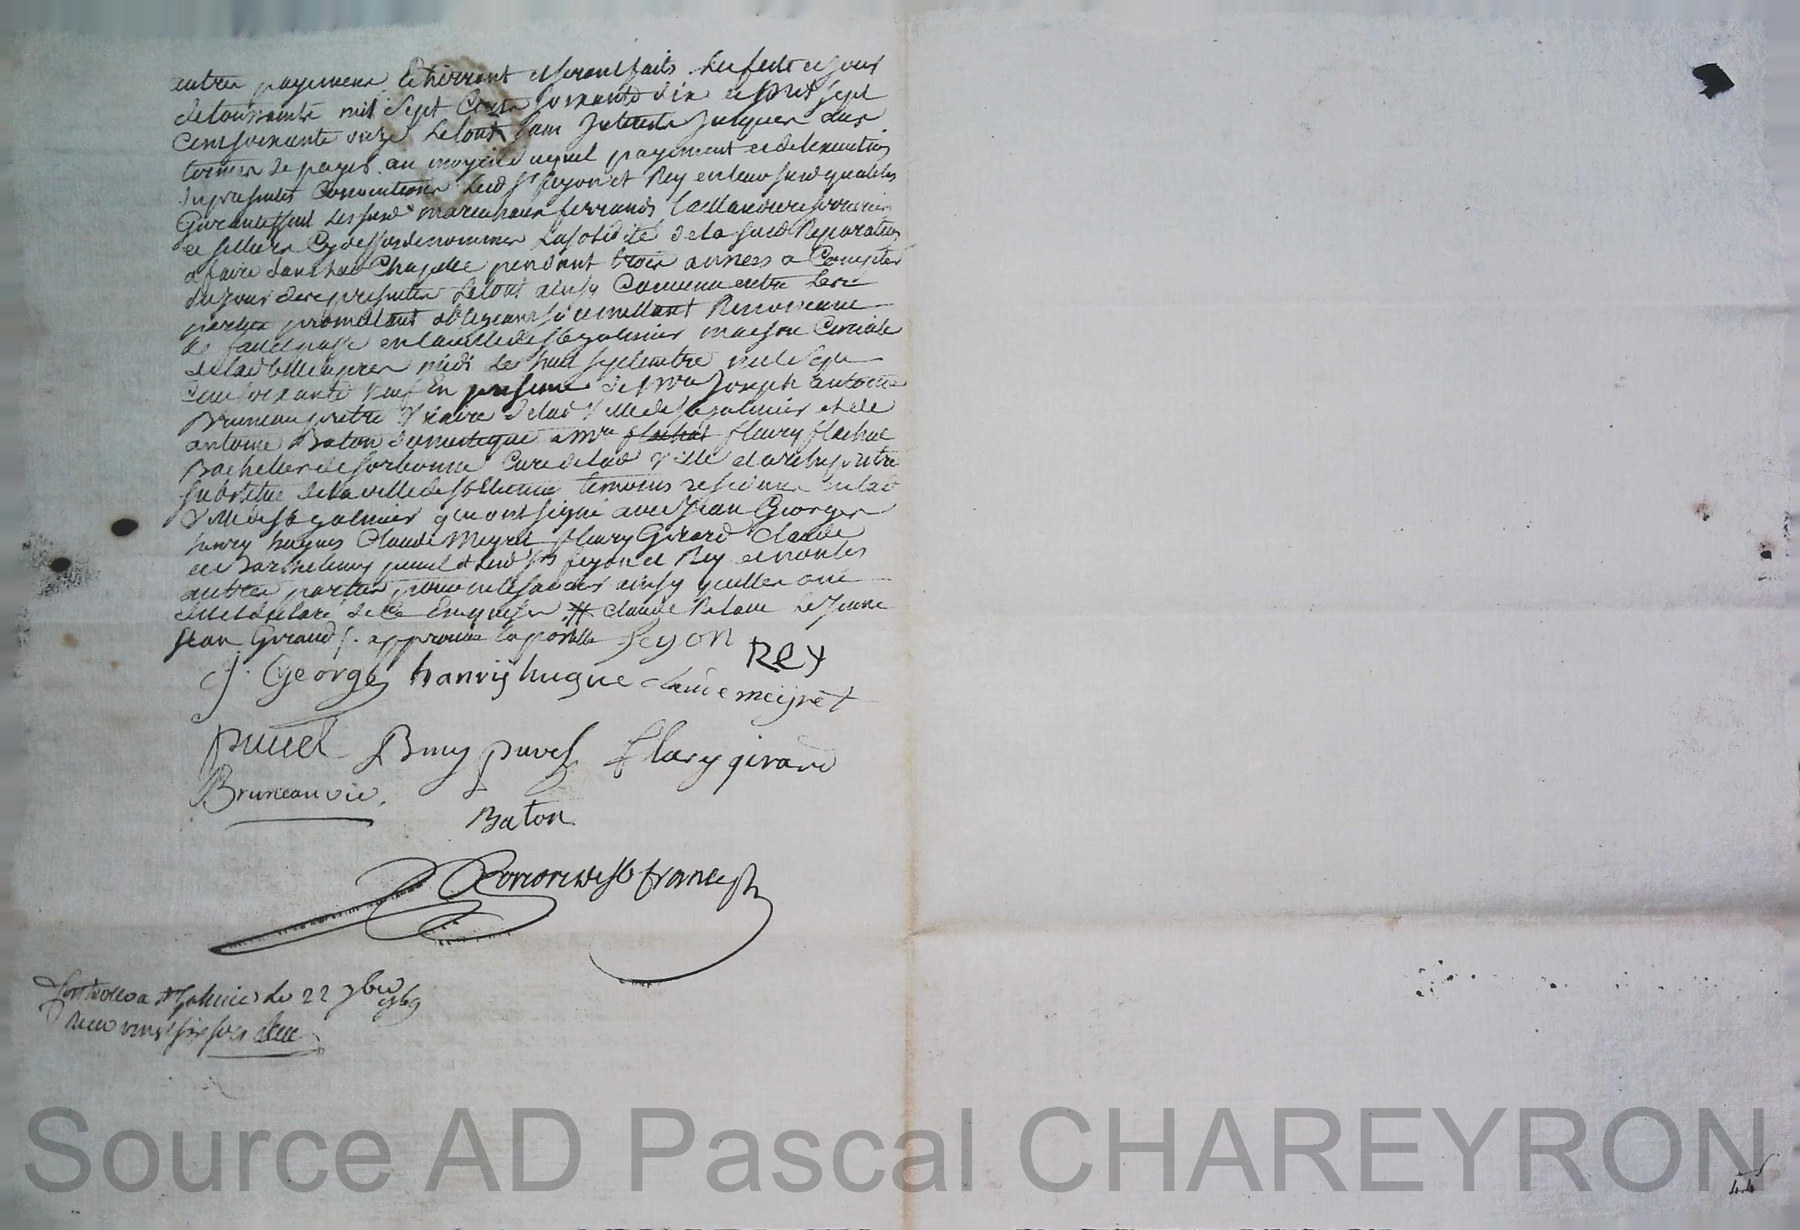 autres payements echerront et seront faits les fetes et jour
de toussaints mil sept cents soixante dix et mil sept
cent soixante onze le tout sans interets jusques aux
termes de payes au moyen duquel payement et de l'execution
des presentes conventions lesd Srs feyon et Rey en leurs susd qualités
les susd marechaux ferrands taillandiers serruriers
et selliers cy dessus denommes la solidité de la susd Reparation
a faire dans lad Chapelle pendant trois années a Compter
du jour des presentes le tout ainsy Convenu entre les
parties promettant obligeant soumettant Renonceant
&c fait et passé en la ville de St galmier maison Curiale
de lad ville apres midi le huit septembre mil sept
cent soixante neuf En presence de Mre Joseph antoine
Bruneau pretre Vicaire de lad Ville de St galmier et de
antoine Baton domestique a Mre flachat fleury flachat
Bachelier de sorbonne Curé de lad Ville et archipretre
substitué de la ville de St Etienne temoins residants en lad
Ville de St galmier qui ont signé avec Jean Georges
henry hugues Claude Meyret fleury Girard Claude
et Barthelemy punel & lesd Srs feyon et Rey et non les
autres parties pour ne le savoir ainsy qu'elles ont
dit et declaré de ce Enquises # claude le Jeune
Jean Giraud /. approuvé la postille feyon
Rey
J. George hanry hugue claude meyret
punel Bmy punel flury girard
Bruneau vic.
Baton
Controllé a St Galmier le 22 7bre 1769
Recu vingt six sols
44
Source AD Pascal CHAREYRON